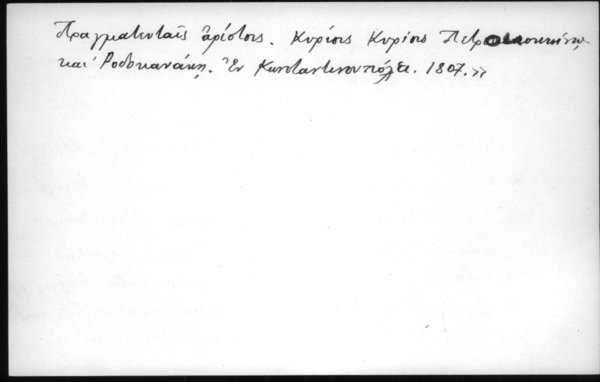 Πραγματευταῖς ἀρίστοις. Κυρίοις Κυρίοις
καὶ Ροδοκανάκη. Ἐν Κωνσταντινουπόλει. 1807.»